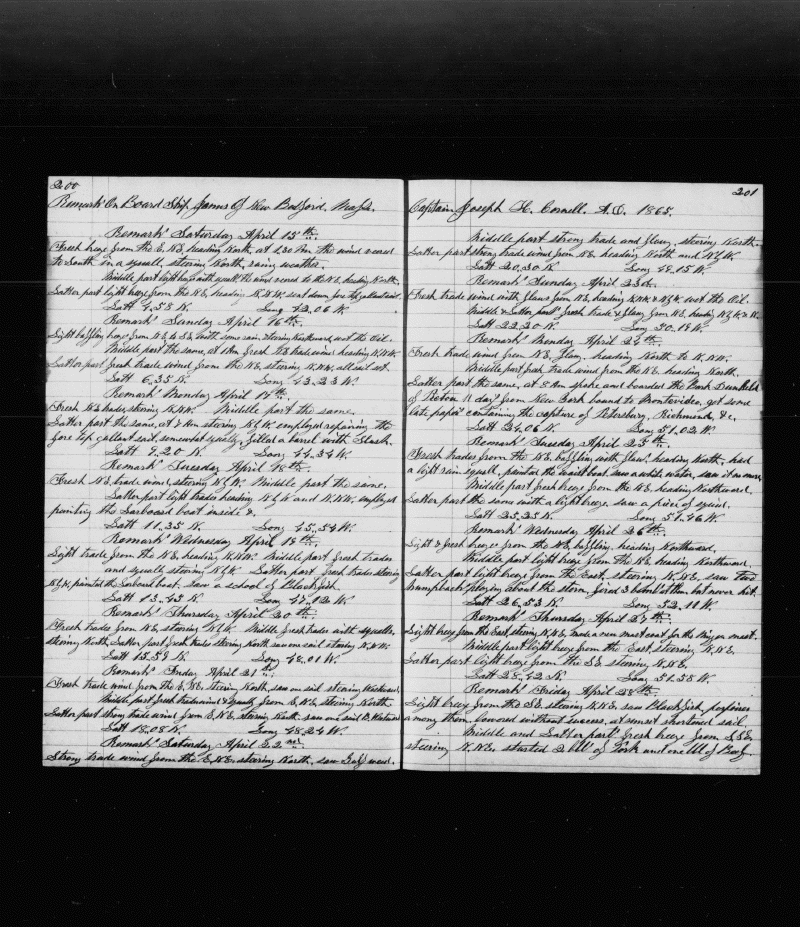 200
Remarks On Board Ship James Of New Bedford. Mass.
Remarks Saturday April 15th.
Fresh breeze from the E.N.E, heading North, at 1,30 Pm, the wind veered
to South in a squall, steering North, rainy weather.
Middle part light with squalls, the wind veered to the N.E, heading North,
Latter part light breeze from the N.E, heading N.N.W. sent down fore topgallant sail.
Latt 4,53 N. Long 42,06 W.
Remarks Sunday April 16th.
Light baffling breeze from N.E, to S.E, with some rain, steering Northward, wet the Oil.
Middle part the same, at 1 Am fresh N.E trade wind heading N.N.W.
Latter part fresh trade wind from the N.E, steering N.N.W, all sail out.
Latt 6,35 N. Long 43,23 W.
Remarks Monday April 17th.
Fresh N.E trades, steering N.N.W. Middle part the same.
Latter part the same, at 7 Am steering N.by W, employed repairing the
fore top gallant sail, somewhat squally, filled a barrel with Slush.
Latt 9,20 N. Long 44,34 W.
Remarks Tuesday April 18th.
Fresh N.E, trade wind, steering N.by W. Middle part the same.
Latter part light trades heading N by W and N.N.W, employed
painting the Larboard boat inside &.
Latt 11,35 N. Long 45,54 W.
Remarks Wednesday April 19th.
Light trade from the N.E, heading N.N.W. Middle part fresh trades
and squally, steering N.by W. Latter part fresh trades steering
N.by W, painted the Larboard boat, saw a school of Blackfish.
Latt 13,45 N. Long 47,12 W.
Remarks Thursday April 20th.
Fresh trades from N.E, steering N.by W. Middle fresh trades with squalls,
steering North, Latter part fresh trades steering North saw one sail steering N.N.W.
Latt 15,59 N. Long 48,01 W.
Remarks Friday April 21st.
Fresh trade wind from the E.N.E, steering North, saw one sail steering Westward,
Middle part fresh trade wind & squally from E.N.E, steering North.
Latter part strong trade wind from E.N.E, steering North, saw one sail
Latt 18,08 N. Long 48,24 W.
Remarks Saturday April 22nd.
Strong trade wind from the E.N.E, steering North, saw Gulf weed.
201
Captain Joseph H. Cornell. A.D. 1865.
Middle part strong trade and flaws, steering North.
Latter part strong trade wind from N.E, heading North and N.by W.
Latt 20,30 N. Long 49,15 W.
Remarks Sunday April 23d.
Fresh trade wind with flaws from N.E, heading N.N.W. & N.by W. wet the Oil.
Middle & Latter parts fresh trade & flaws, from N.E, heading N.by W. & N.
Latt 22,20 N. Long 50,19 W.
Remarks Monday April 24th.
Fresh trade wind from N.E, flaws, heading North to N.N.W.
Middle part fresh trade wind from the N.E, heading North.
Latter part the same, at 8 Am spoke and boarded the Bark
of Boston 11 days from New York bound to Montevideo, got some
late papers containing the capture of Petersburg, Richmond, &c,
Latt 24,06 N. Long 51,02 W.
Remarks Tuesday April 25th.
Fresh trades from the N.E, baffling, with flaws, heading North, had
a light rain squall, painted the waist boat, saw a white water, saw it no more,
Middle part fresh breeze from the N.E, heading Northward.
Latter part the same with a light breeze, saw a piece of squid.
Latt 25,25 N. Long 51,46 W.
Remarks Wednesday April 26th.
Light & fresh breeze from the N.E, baffling, heading Northward.
Middle part light breeze from the N.E, heading Northward.
Latter part light breeze from the East, steering N.N.E, saw two
humpbacks playing about the stern, fired 3 bombs at them but never hit.
Latt 26,53 N. Long 52,11 W.
Remarks Thursday April 27th.
Light breeze from the East steering N.N.E, made a new mast coat for the Mizzen mast.
Middle part light breeze from the East, steering N.N.E.
Latter part light breeze from the S.E, steering N.N.E.
Latt 28,42 N. Long 51,58 W.
Remarks Friday April 28th.
Light breeze from the S.E, steering N.N.E, saw Blackfish, porpoises
among them, lowered without success, at sunset shortened sail
Middle and Latter parts fresh breeze from S.S.E,
steering N.N.E. started 2 bbls of Pork and one bbl of Beef.